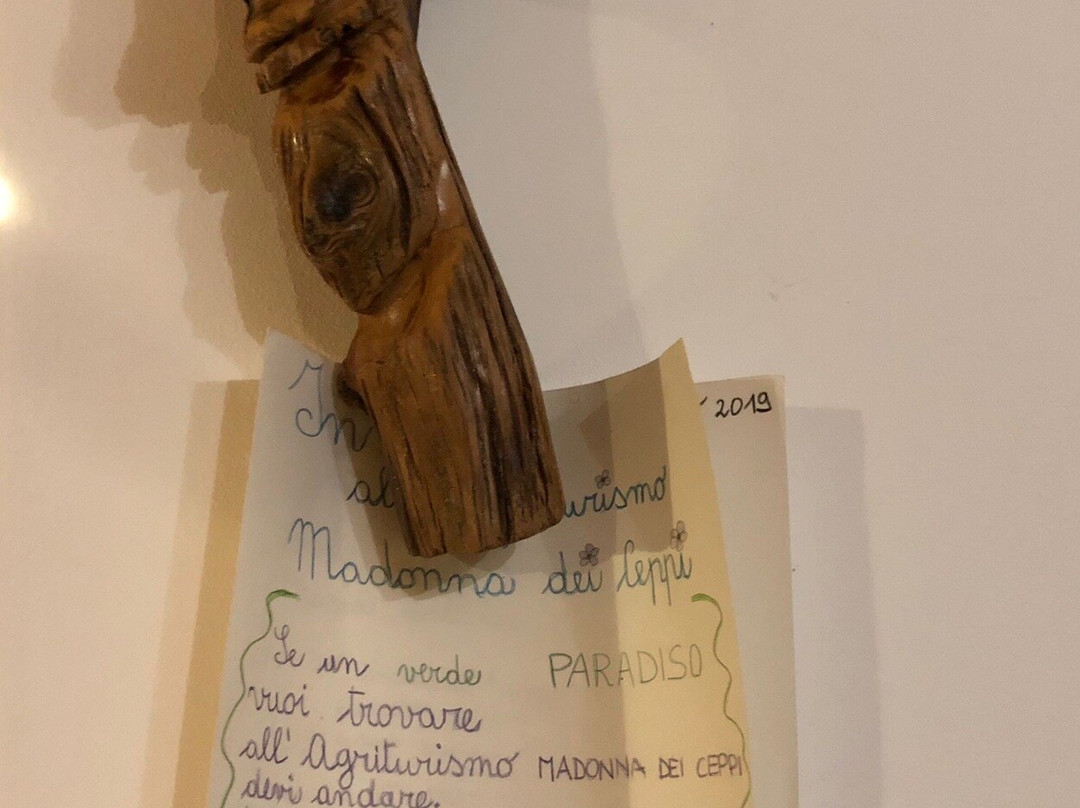 2019
In
al urismo
Madonna dei Ceppi
Se un verde PARADISO
vuoi trovare
all' Agriturismo MADONNA DEI CEPPI
devi andare.